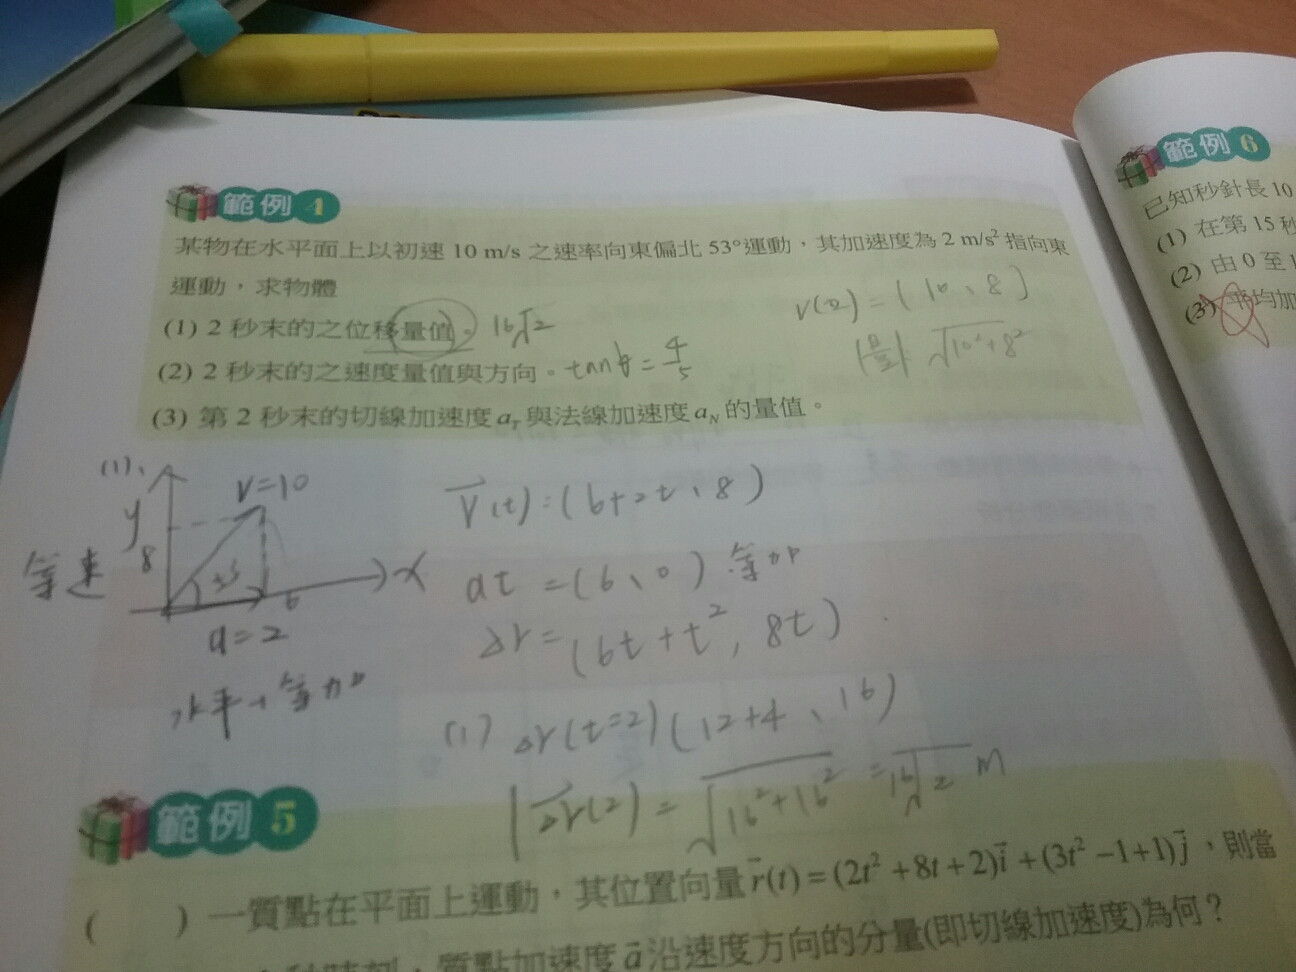 範例 4
某物在水平面上以初速 10 m/s 之速率向東偏北 53°運動，其加速度為 2 m/s² 指向東
運動，求物體
(1) 2 秒末的之位移量值。 16√2
(2) 2 秒末的之速度量值與方向。 tanθ = 4/5
(3) 第 2 秒末的切線加速度 a_T 與法線加速度 a_N 的量值。
v(2) = (10、8)
√10²+8²
(1)、
y
v=10
8
53
6
x
等速
a=2
水平→等加
V(t):(6+2t、8)
at =(6、0) 等加
Δr= (6t+t², 8t)
(1) Δr(t=2)(12+4、16)
|Δr(2) = √16²+16² = 16√2 m
範例 5
( ) 一質點在平面上運動，其位置向量 r(t) = (2t² + 8t + 2)i + (3t² −1+1)j，則當
質點加速度 a 沿速度方向的分量(即切線加速度)為何？
範例 6
已知秒針長 10
(1) 在第 15 秒
(2) 由 0 至 1
(3) 平均加